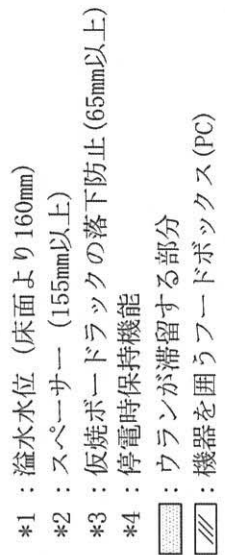 *1：溢水水位（床面より160mm）
*2：スペーサー（155mm以上）
*3：仮焼ボードラックの落下防止(65mm以上)
*4：停電時保持機能
：ウランが滞留する部分
：機器を囲うフードボックス(PC)